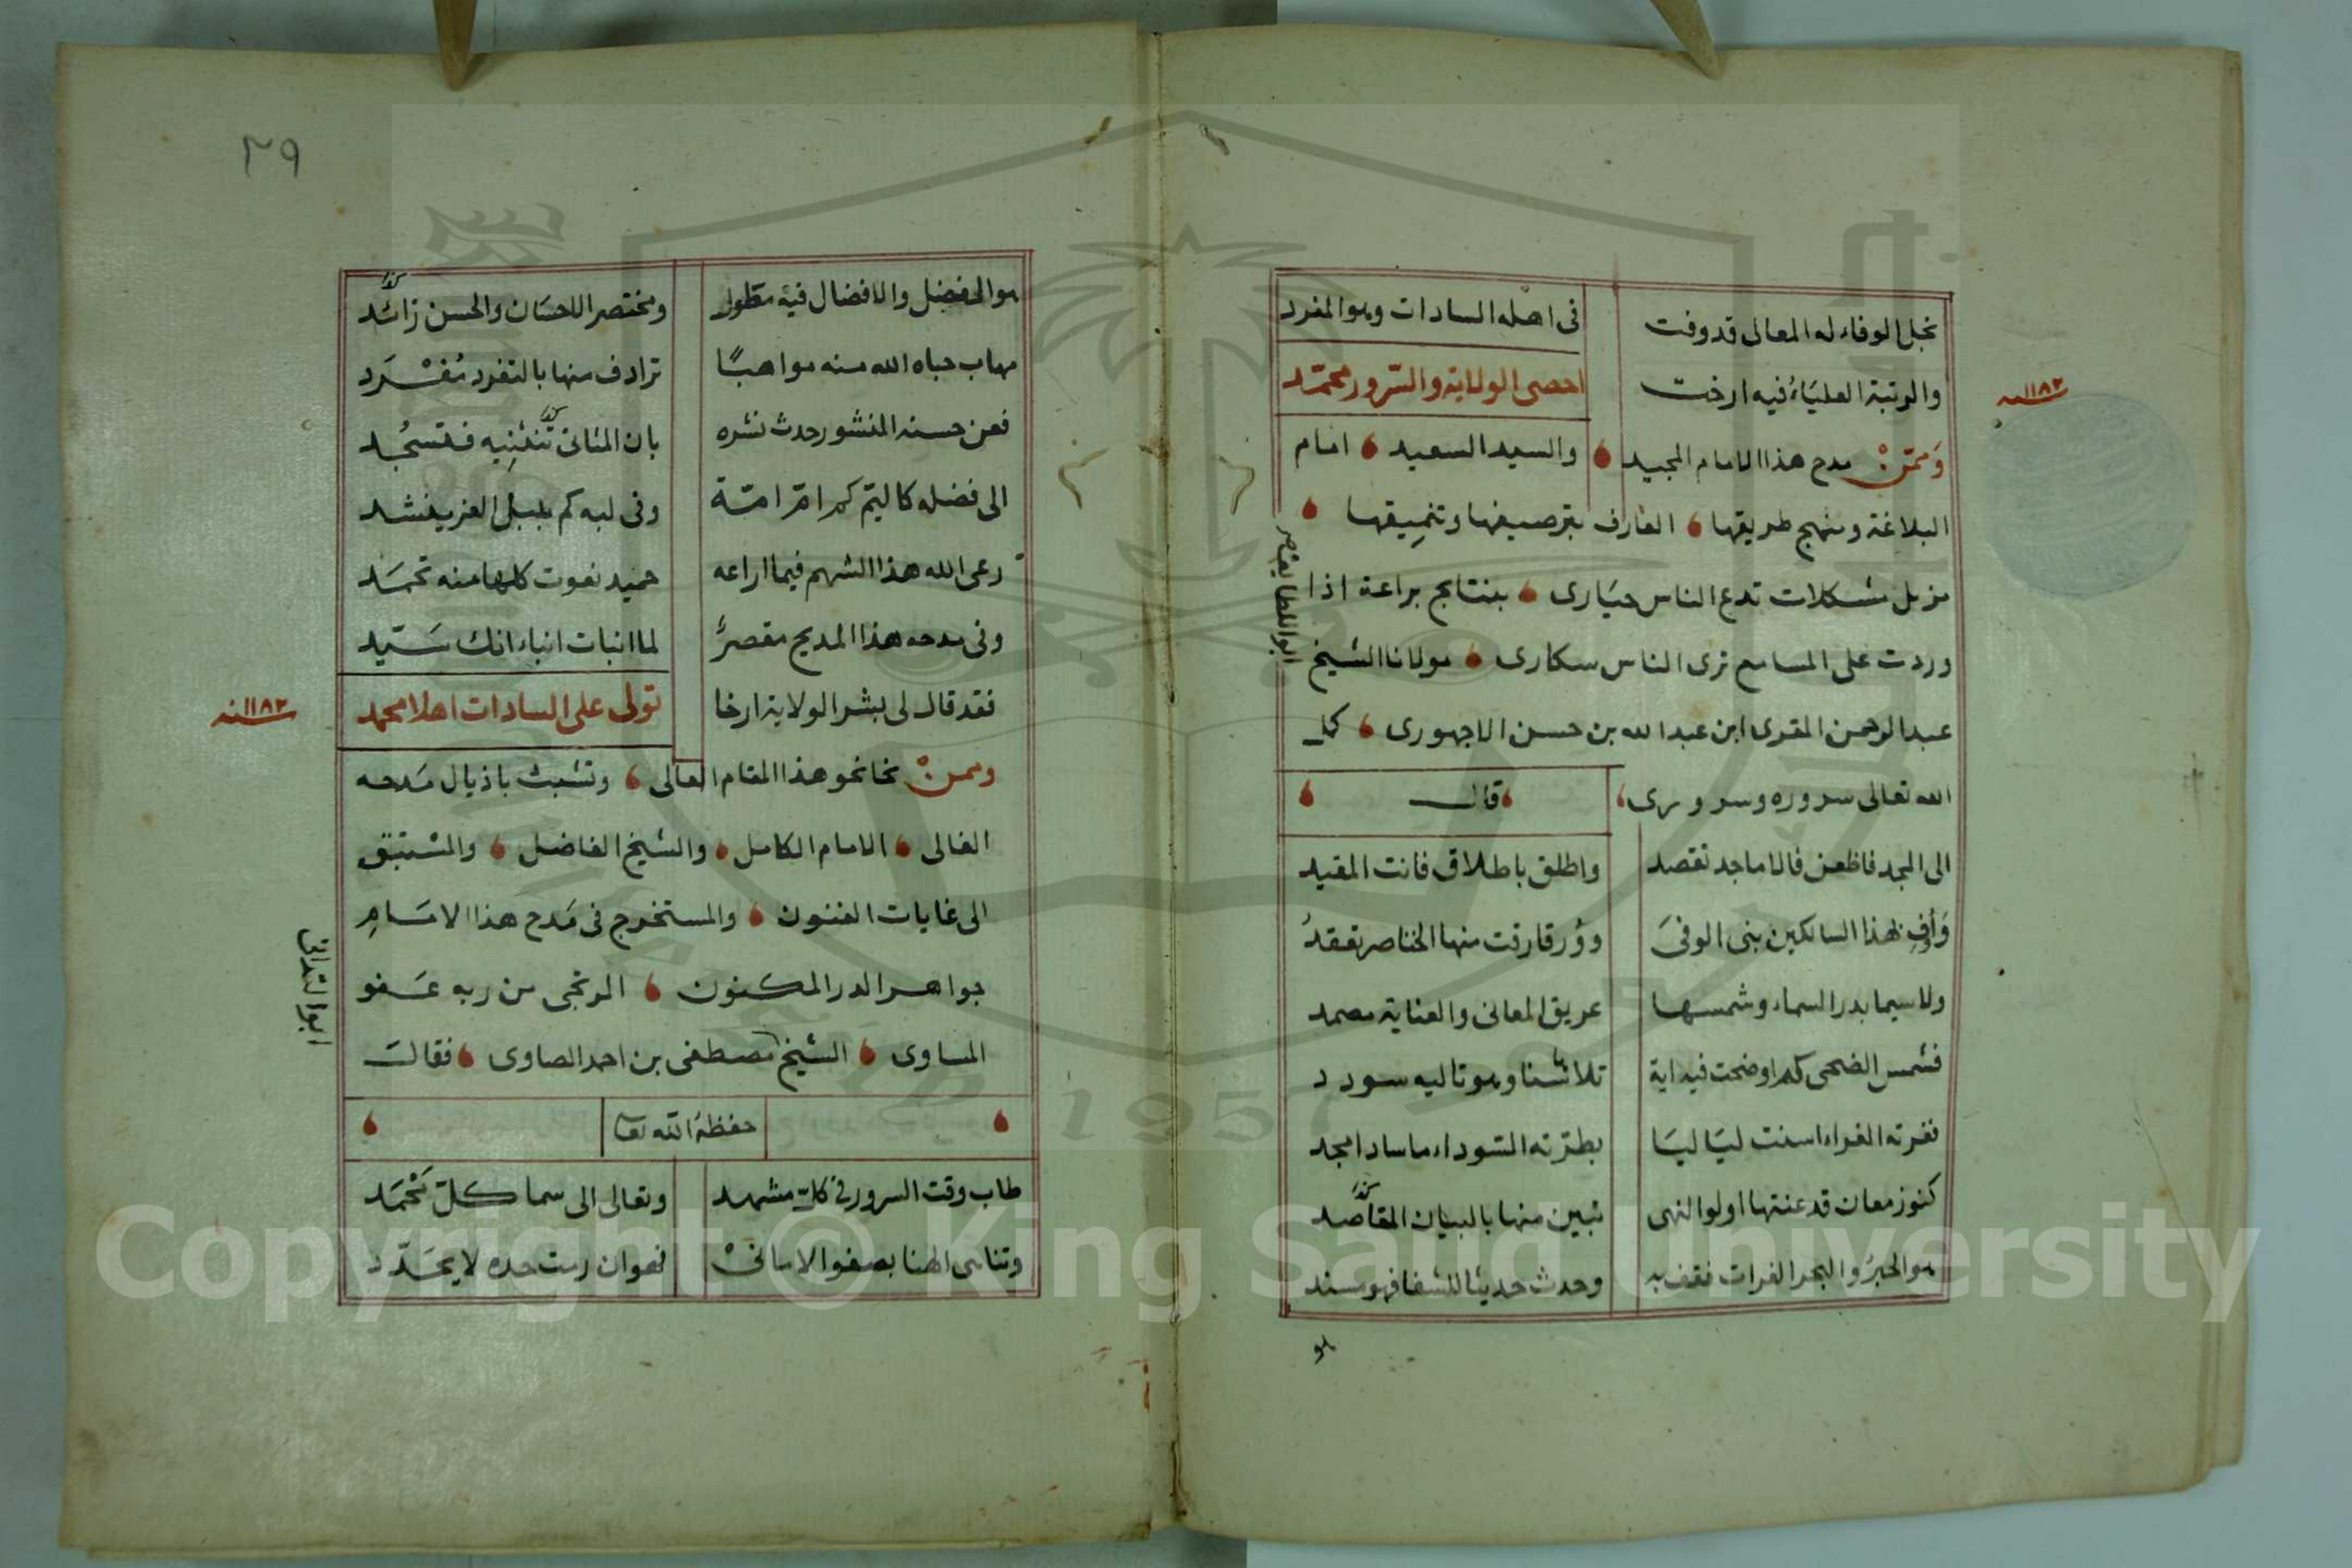 نجل الوفاء له المعالى قد وفت فى اهله السادات وهو المفرد
والرتبة العلياء فيه ارخت احصى الولاية والسرور محمد
سنه ١١٨٢
وممن مدح هذا الامام المجيد والسيد السعيد امام
البلاغة ومنهج طريقها العارف بترصيفها وتنميقها
مزيل مشكلات تدع الناس حيارى بنتايج براعة اذا
وردت على المسامع ترى الناس سكارى مولانا الشيخ
ابو اللطايف
عبد الرحمن المقرى ابن عبد الله بن حسن الاجهورى كمل
الله تعالى سروره وسر وسرى قال
الى المجد فاظعن فالاماجد تقصد واطلق باطلاق فانت المقيد
وأوف لهذا السالكين بنى الوفى وؤرقا رقت منها الخناصر تعقد
ولا سيما بدر السماء وشمسها عريق المعانى والعناية مصمد
فشمس الضحى كم اوضحت فيه اية تلا شنا وهو تاليه سودد
فغرته الغراء اسنت لياليا بطرته السوداء ما ساد امجد
كنوز معان قد عنتها اولوا النهى تبين منها بالبيان المقاصد
هو الحبر والبحر الفرات فقف به وحدث حديثا للشفا فهو مسند
هو
٢٩
هو المفضل والافضال فيه مطول ومختصر الاحسان والحسن زائد
مهاب حباه الله منه مواهبا ترادف منها بالتفرد مفرد
فعن حسنه المنثور حدث نشره بان المثانى تنثنيه فتسجد
الى فضله كاليم كم ام امة وفى لبه كم بلبل العز ينشد
رعى الله هذا الشهم فيما اراعه حميد نعوت كلها منه تحمد
وفى مدحه هذا المديح مقصر لما انبات انباء انك سيد
فقد قال لى بشر الولاية ارخا تولى على السادات اهلا محمد
سنه ١١٨٢
وممن نحا نحو هذا المقام العالى وتشبث باذيال مدحه
الغالى الامام الكامل والشيخ الفاضل والمستبق
الى غايات الفنون والمستخرج فى مدح هذا الامام
جواهر الدر المكنون المرتجى من ربه عفو
ابو التدانى
المساوى الشيخ مصطفى بن احمد الصاوى فقال
حفظه الله تعا
طاب وقت السرور فى كل مشهد وتعالى الى سما كل محمد
وتناهى الهنا بصفو الامانى فهو ان رمت حده لا يحدد
Copyright © King Saud University
1957